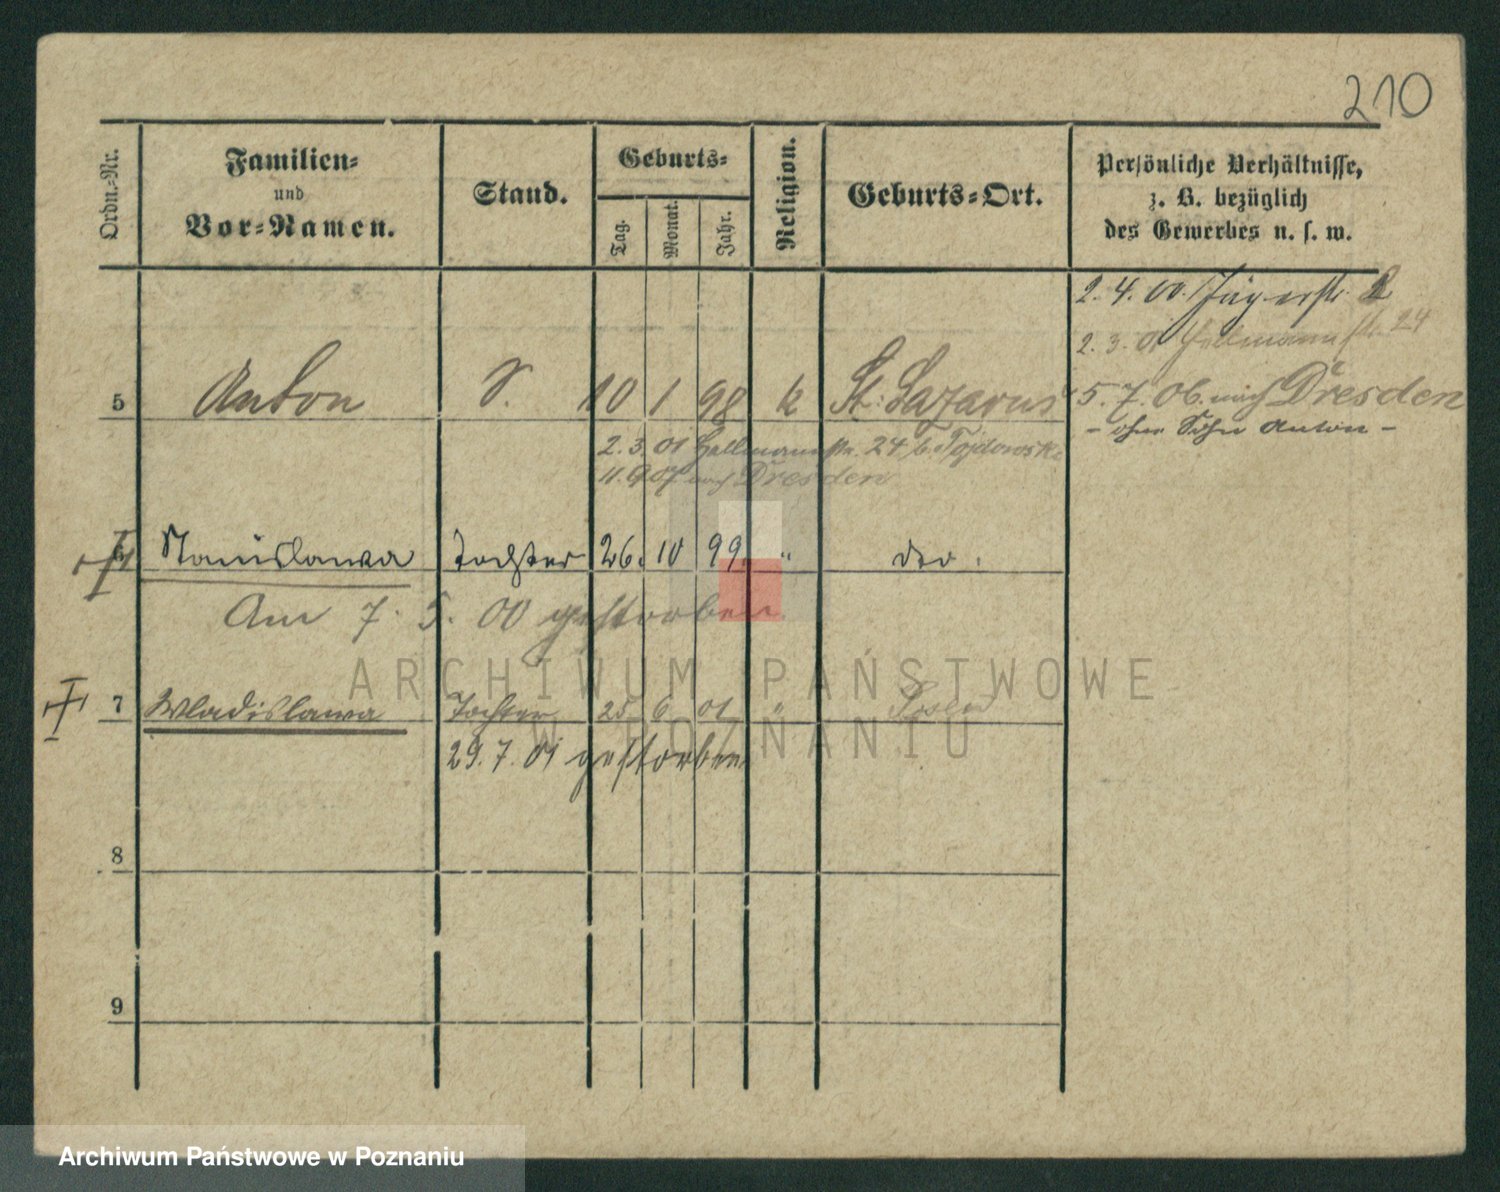 210
Ordn.-Nr.
Familien-
und
Vor-Namen.
Stand.
Geburts-
Tag.
Monat.
Jahr.
Religion.
Geburts-Ort.
Persönliche Verhältnisse,
z. B. bezüglich
des Gewerbes u. s. w.
2. 4. 00. Jägerstr. 2
2. 3. 01 Hellmannstr. 24
5 Anton S. 10 1 98 k St. Lazarus
5. 7. 06. nach Dresden
- ohne Sohn Anton -
2. 3. 01 Hellmannstr. 24 b. Fojdowski
11. 9 07 nach Dresden
6 Stanislawa Tochter 26. 10 99. " dto.
Am 7. 5. 00 gestorben.
7 Wladislawa Tochter 25 6 01 " Posen
29. 7. 01 gestorben
8
9
ARCHIWUM PAŃSTWOWE
W POZNANIU
Archiwum Państwowe w Poznaniu